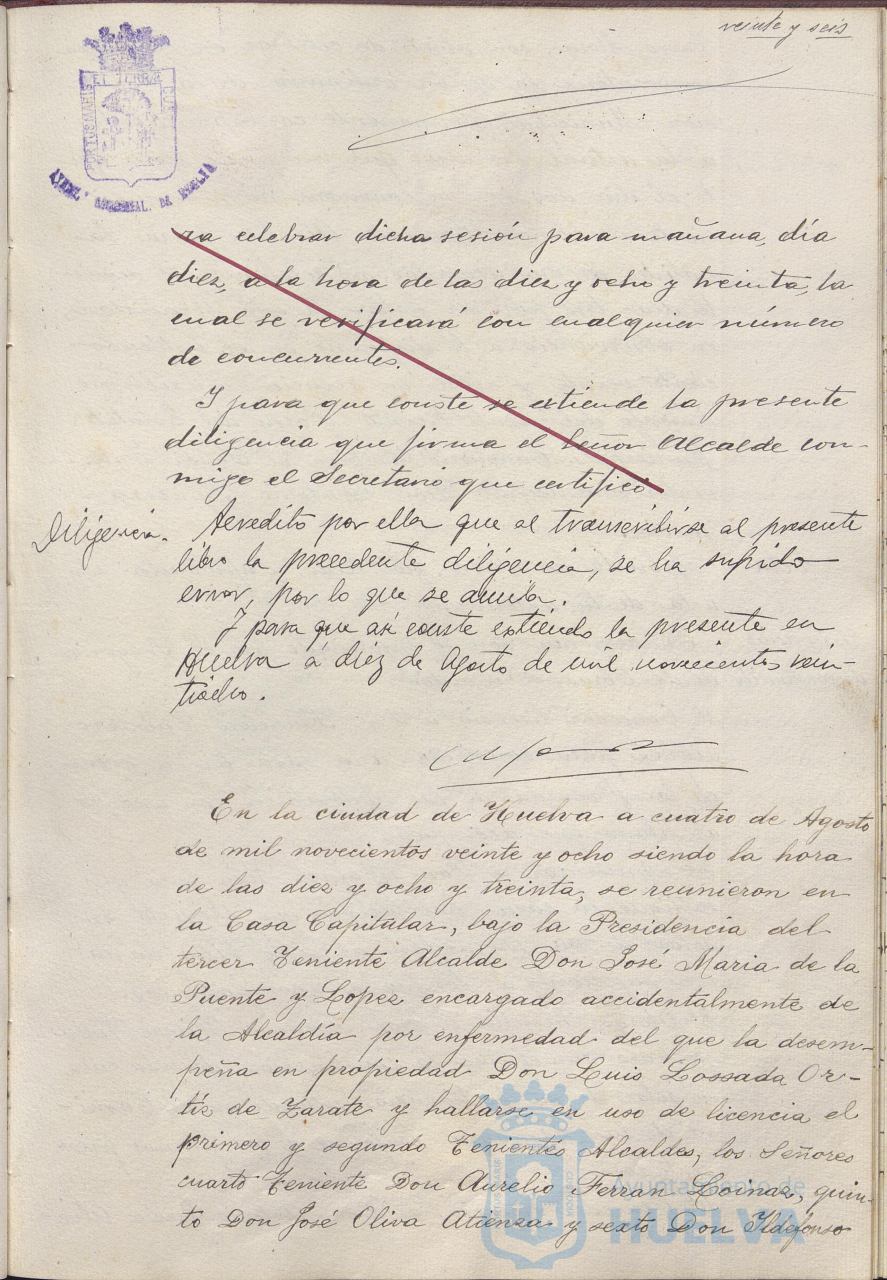 veinte y seis
PORTUS MARIS ET TERRÆ CUSTODIA
AYUNT.º MUNICIPAL. DE HUELVA
ra celebrar dicha sesión para mañana, día
diez, a la hora de las diez y ocho y treinta, la
cual se verificará con cualquier número
de concurrentes.
Y para que conste se extiende la presente
diligencia que firma el Señor Alcalde con-
migo el Secretario que certifico
Diligencia.
Acredito por ella que al transcribirse al presente
libro la precedente diligencia, se ha sufrido
error, por lo que se anula.
Y para que así conste extiendo la presente en
Huelva á diez de Agosto de mil novecientos vein-
tiocho.
En la ciudad de Huelva a cuatro de Agosto
de mil novecientos veinte y ocho siendo la hora
de las diez y ocho y treinta, se reunieron en
la Casa Capitular, bajo la Presidencia del
tercer Teniente Alcalde Don José Maria de la
Puente y Lopez encargado accidentalmente de
la Alcaldía por enfermedad del que la desem-
peña en propiedad Don Luis Lossada Or-
tíz de Zarate y hallarse en uso de licencia el
primero y segundo Tenientes Alcaldes, los Señores
cuarto Teniente Don Aurelio Ferran Loinaz, quin-
to Don José Oliva Atienza y sexto Don Ildefonso
Ayuntamiento de
HUELVA